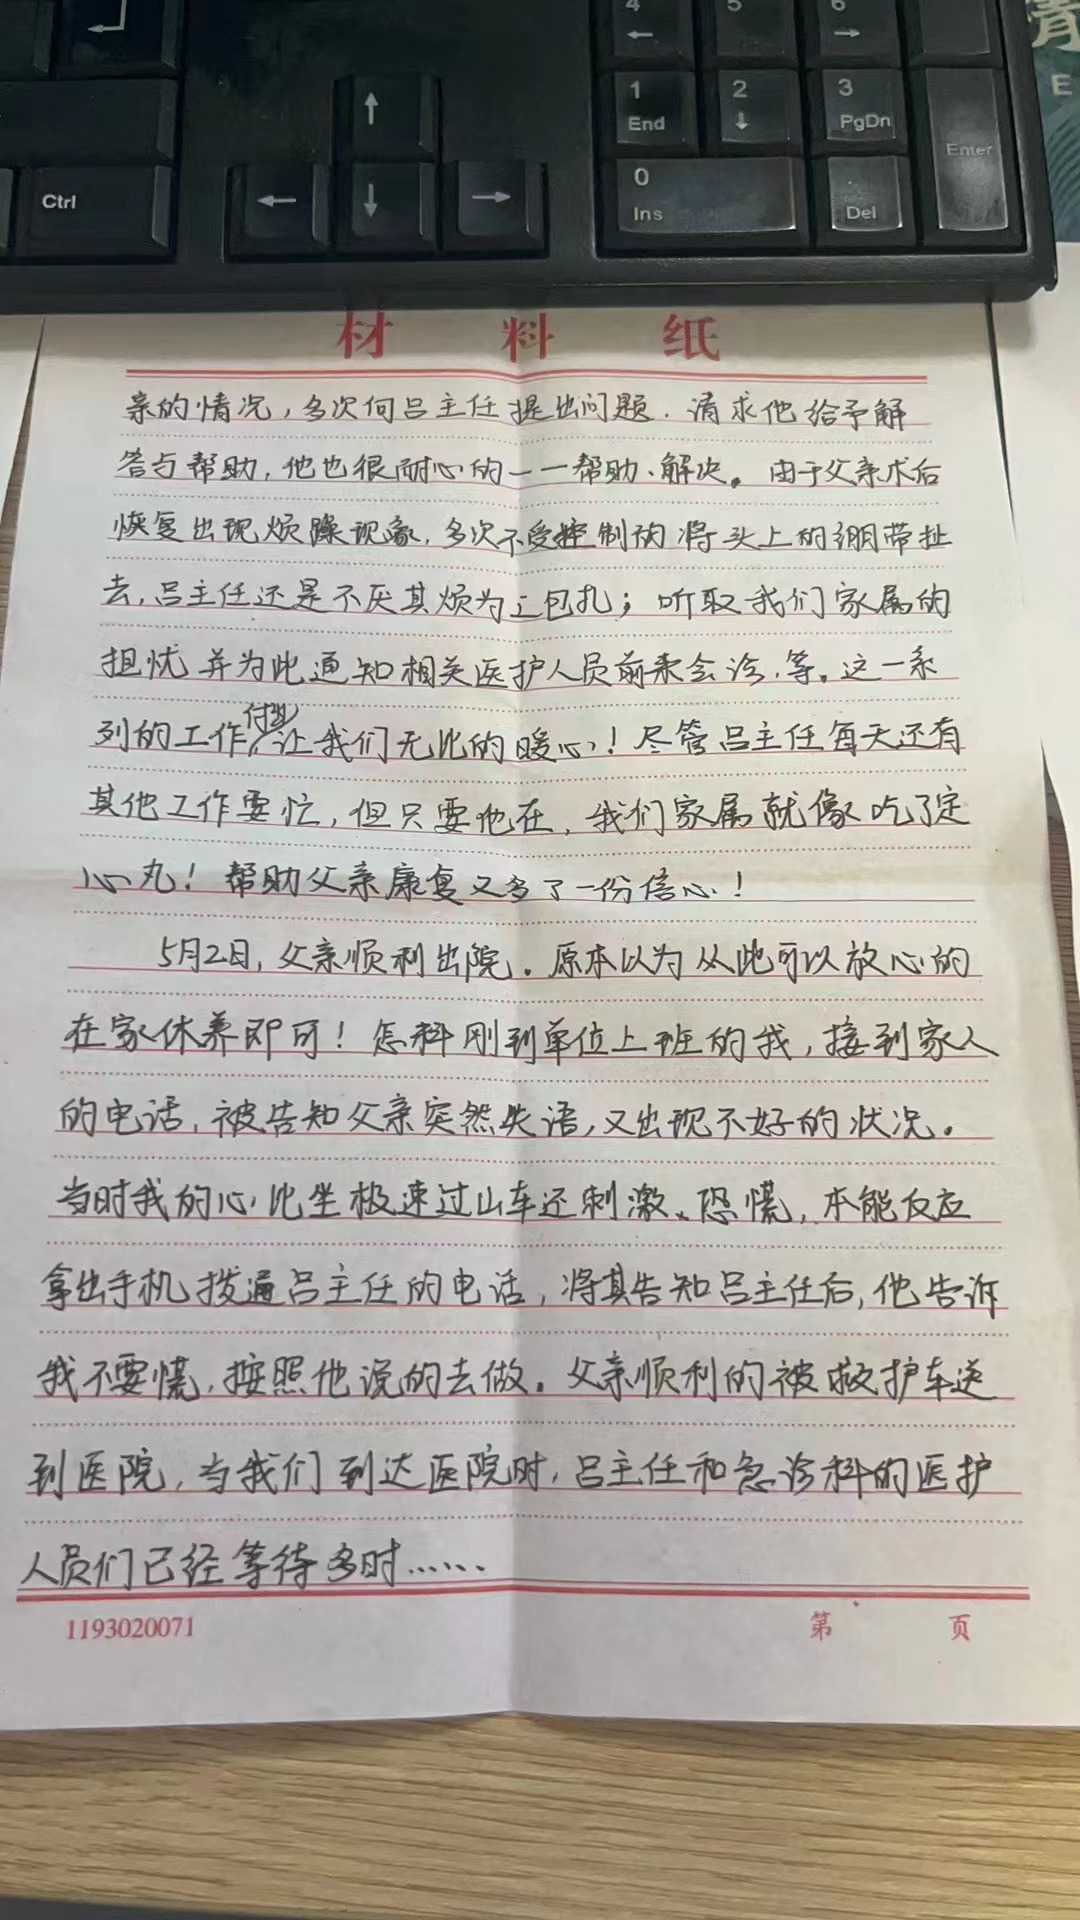 4
5
6
←
→
1
2
3
End
↓
PgDn
Enter
Ctrl
↑
←
↓
→
0
Ins
Del
青
E
材 料 纸
亲的情况，多次向吕主任提出问题，请求他给予解
答与帮助，他也很耐心的一一帮助、解决。由于父亲术后
恢复出现烦躁现象，多次不受控制的将头上的绷带扯
去，吕主任还是不厌其烦为之包扎；听取我们家属的
担忧并为此通知相关医护人员前来会诊，等。这一系
列的工作付出让我们无比的暖心！尽管吕主任每天还有
其他工作要忙，但只要他在，我们家属就像吃了定
心丸！帮助父亲康复又多了一份信心！
5月2日，父亲顺利出院。原本以为从此可以放心的
在家休养即可！怎料刚到单位上班的我，接到家人
的电话，被告知父亲突然失语，又出现不好的状况。
当时我的心比坐极速过山车还刺激、恐慌，本能反应
拿出手机拨通吕主任的电话，将其告知吕主任后，他告诉
我不要慌，按照他说的去做。父亲顺利的被救护车送
到医院，当我们到达医院时，吕主任和急诊科的医护
人员们已经等待多时……
1193020071
第 页